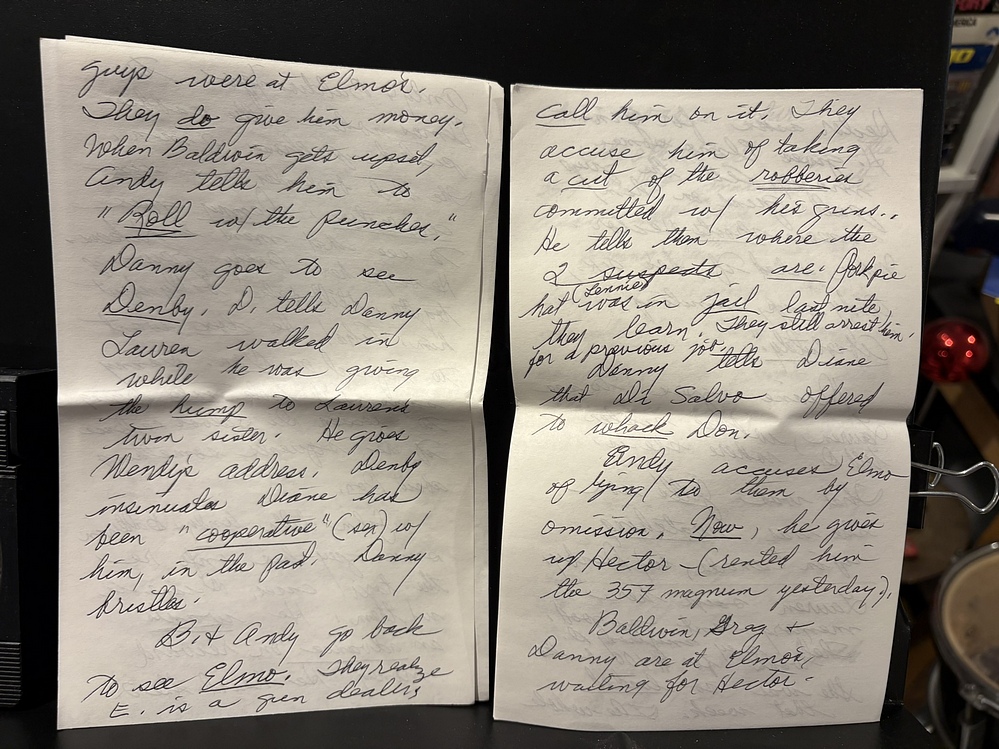 guys were at Elmo's.
They do give him money.
When Baldwin gets upset,
Andy tells him to
"Roll w/ the punches."
Danny goes to see
Denby. D. tells Danny
Lauren walked in
while he was giving
the hump to Lauren's
twin sister. He gives
Wendy's address. Denby
insinuates Diane has
been "cooperative" (sex) w/
him, in the past. Danny
bristles.
B. + Andy go back
to see Elmo. They realize
E. is a gun dealer,
call him on it. They
accuse him of taking
a cut of the robberies
committed w/ his guns..
He tells them where the
2 suspects are. Porkpie
hat (Lennie) was in jail last nite,
they learn. They still arrest him.
for a previous job.
Danny tells Diane
that Di Salvo offered
to whack Don.
Andy accuses Elmo
of lying to them by
omission. Now, he gives
up Hector - (rented him
the 357 magnum yesterday).
Baldwin, Greg +
Danny are at Elmo's,
waiting for Hector.
AMERICA